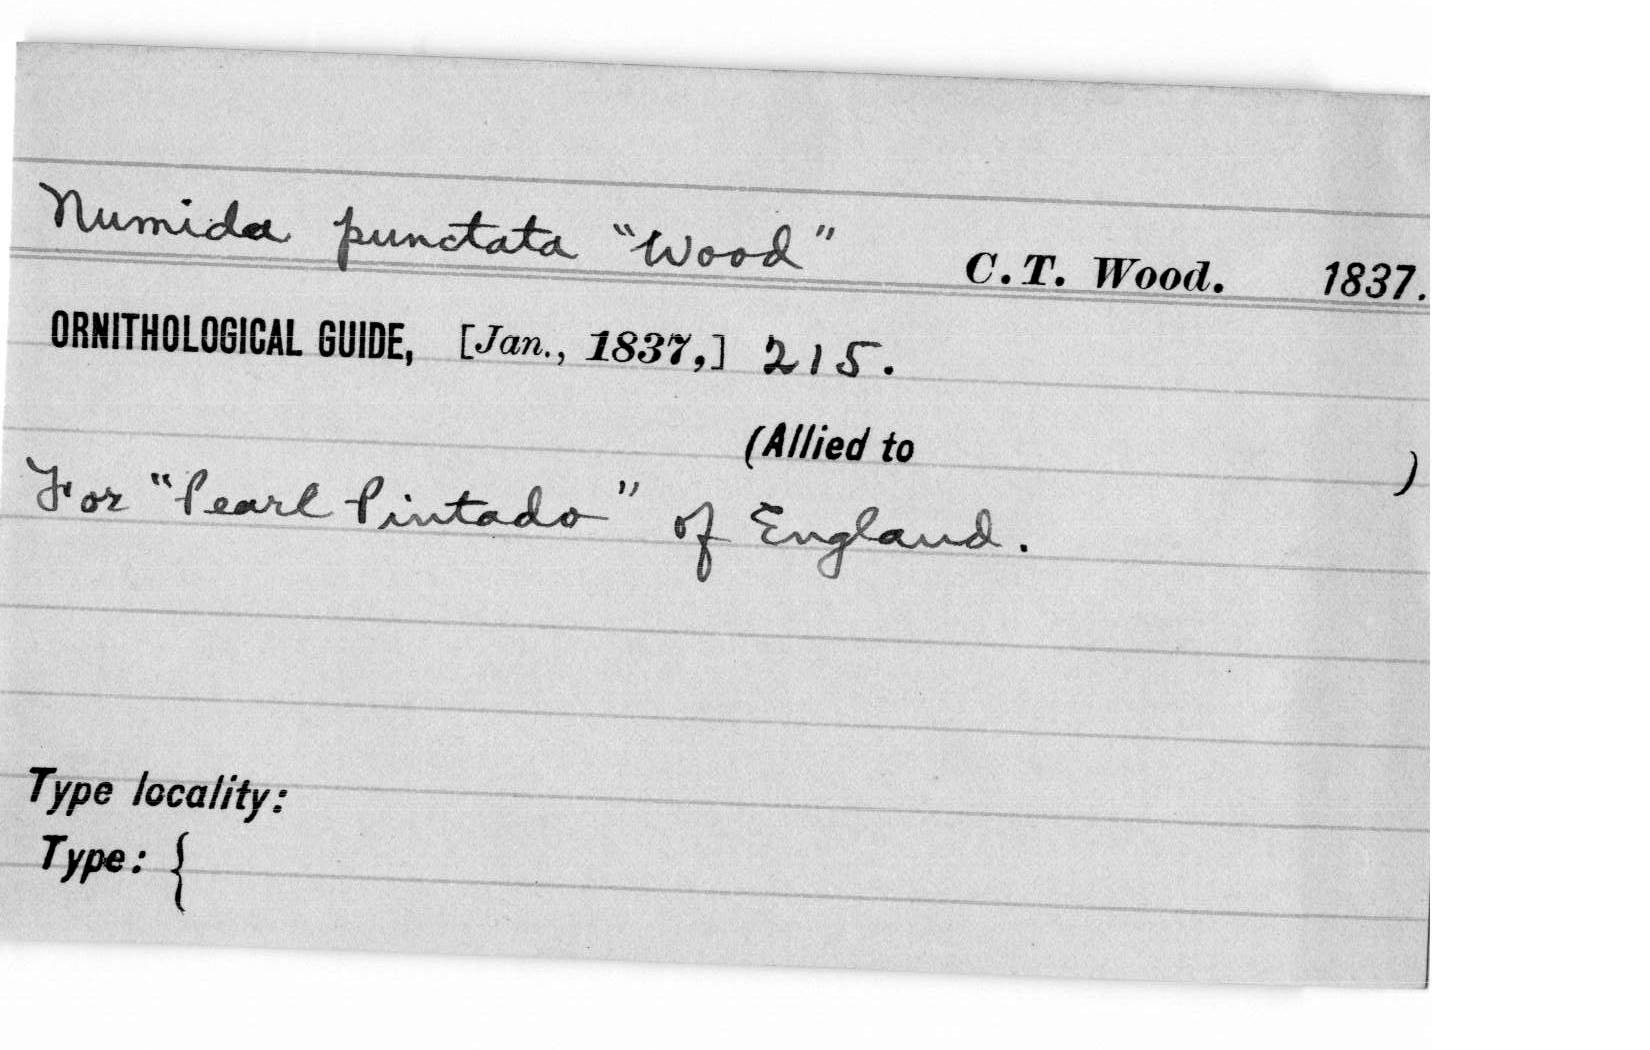 Numida punctata "Wood" C. T. Wood. 1837.
ORNITHOLOGICAL GUIDE, [Jan., 1837,] 215.
(Allied to )
For "Pearl Pintado" of England.
Type locality:
Type: {